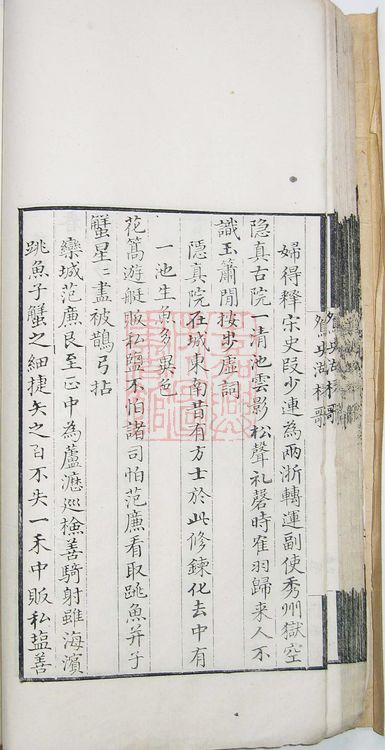 婦得釋宋史段少連為兩浙轉運副使秀州獄空
隐真古院一清池雲影松聲礼磬時隺羽歸来人不
識玉簫閒按步虛詞
隱真院在城東南昔有方士於此修鍊化去中有
一池生魚多異色
花篙游艇販私鹽不怕諸司怕范廉看取跳魚并子
蟹星〻盡被鵲弓拈
欒城范廉艮至正中為蘆瀝巡檢善騎射雖海濱
跳魚子蟹之細捷矢之百不失一禾中販私盐善